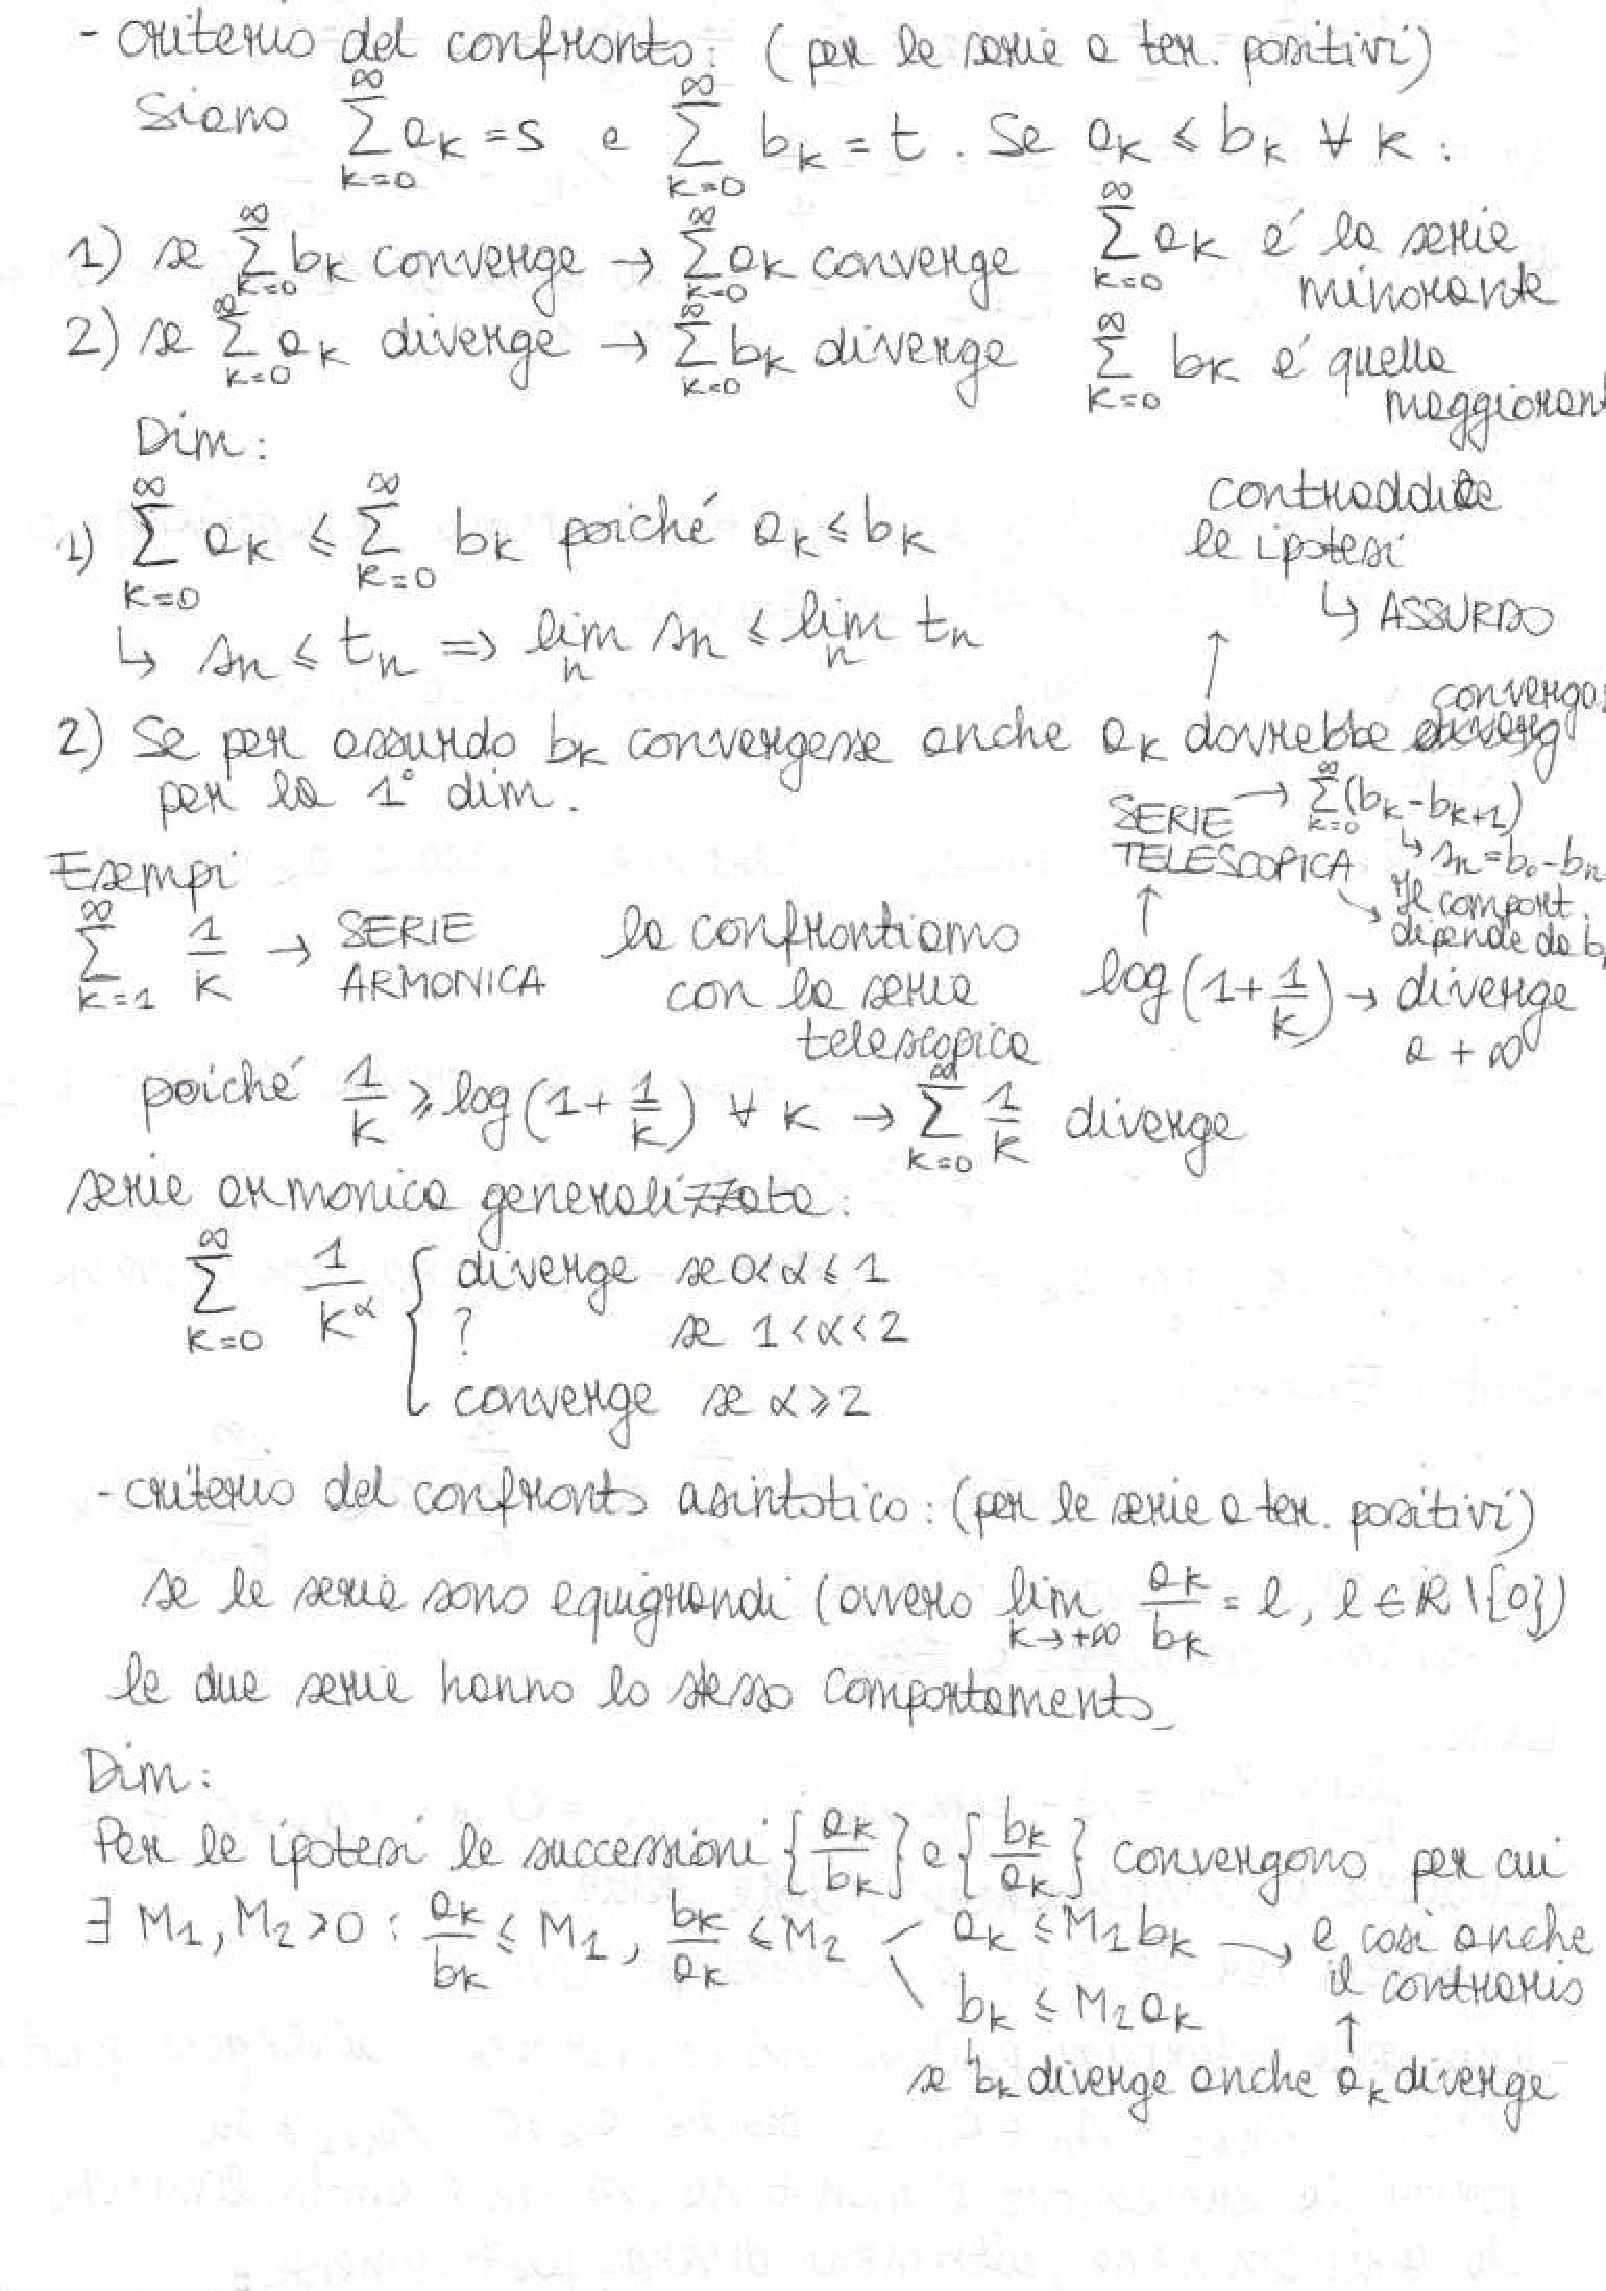 - criterio del confronto: (per le serie a ter. positivi)
Siano ∑_{k=0}^{∞} a_k = s e ∑_{k=0}^{∞} b_k = t. Se a_k ≤ b_k ∀ k:
1) se ∑_{k=0}^{∞} b_k converge → ∑_{k=0}^{∞} a_k converge
∑_{k=0}^{∞} a_k é la serie
minorante
2) se ∑_{k=0}^{∞} a_k diverge → ∑_{k=0}^{∞} b_k diverge
∑_{k=0}^{∞} b_k é quella
maggiorant
Dim:
1) ∑_{k=0}^{∞} a_k ≤ ∑_{k=0}^{∞} b_k poiché a_k ≤ b_k
↳ s_n ≤ t_n ⇒ lim_n s_n ≤ lim_n t_n
contraddice
le ipotesi
↳ ASSURDO
↑
2) Se per assurdo b_k convergesse anche a_k dovrebbe converga
per la 1° dim.
SERIE TELESCOPICA → ∑_{k=0}^{∞} (b_k - b_{k+1})
↳ s_n = b_0 - b_n
↘ Il comport.
dipende da b
Esempi
∑_{k=1}^{∞} 1/k → SERIE ARMONICA
la confrontiamo
con la serie
telescopica
↑
log(1 + 1/k) → diverge
a +∞
poiché 1/k ≥ log(1 + 1/k) ∀ k → ∑_{k=0}^{∞} 1/k diverge
serie armonica generalizzata:
∑_{k=0}^{∞} 1/k^α { diverge se 0 < α ≤ 1
? se 1 < α < 2
converge se α ≥ 2
- criterio del confronto asintotico: (per le serie a ter. positivi)
se le serie sono equigrandi (ovvero lim_{k→+∞} a_k/b_k = l, l ∈ ℝ \ {0})
le due serie hanno lo stesso comportamento
Dim:
Per le ipotesi le successioni {a_k/b_k} e {b_k/a_k} convergono per cui
∃ M_1, M_2 > 0 : a_k/b_k ≤ M_1, b_k/a_k ≤ M_2 a_k ≤ M_1 b_k → e così anche
il contrario
b_k ≤ M_2 a_k ↑
↳ se b_k diverge anche a_k diverge